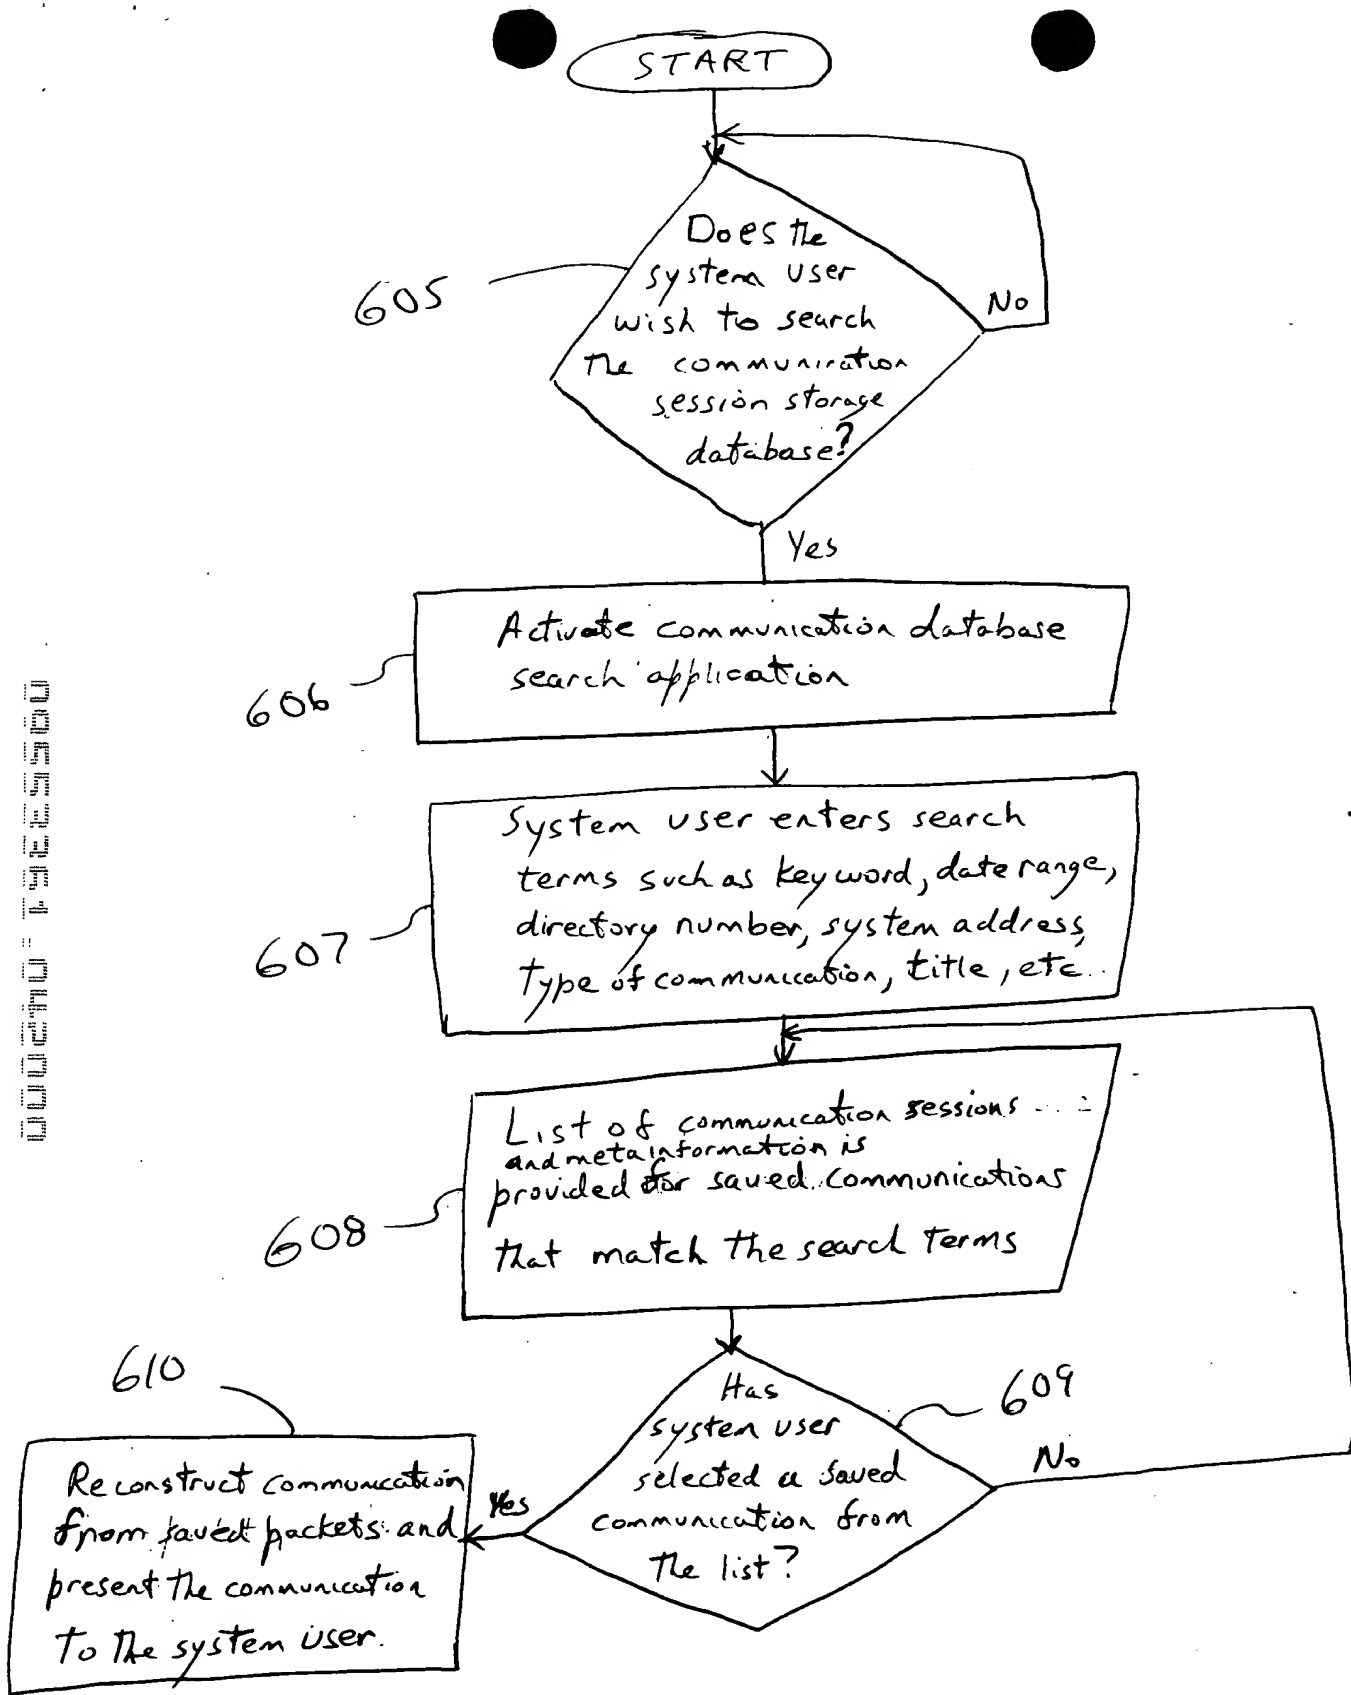 START
Does the
system user
wish to search
the communication
session storage
database?
605
No
Yes
Activate communication database
search application
606
System user enters search
terms such as keyword, date range,
directory number, system address,
type of communication, title, etc..
607
List of communication sessions
and metainformation is
provided for saved communications
that match the search terms
608
Has
system user
selected a saved
communication from
the list?
609
No
Yes
610
Reconstruct communication
from saved packets and
present the communication
to the system user.